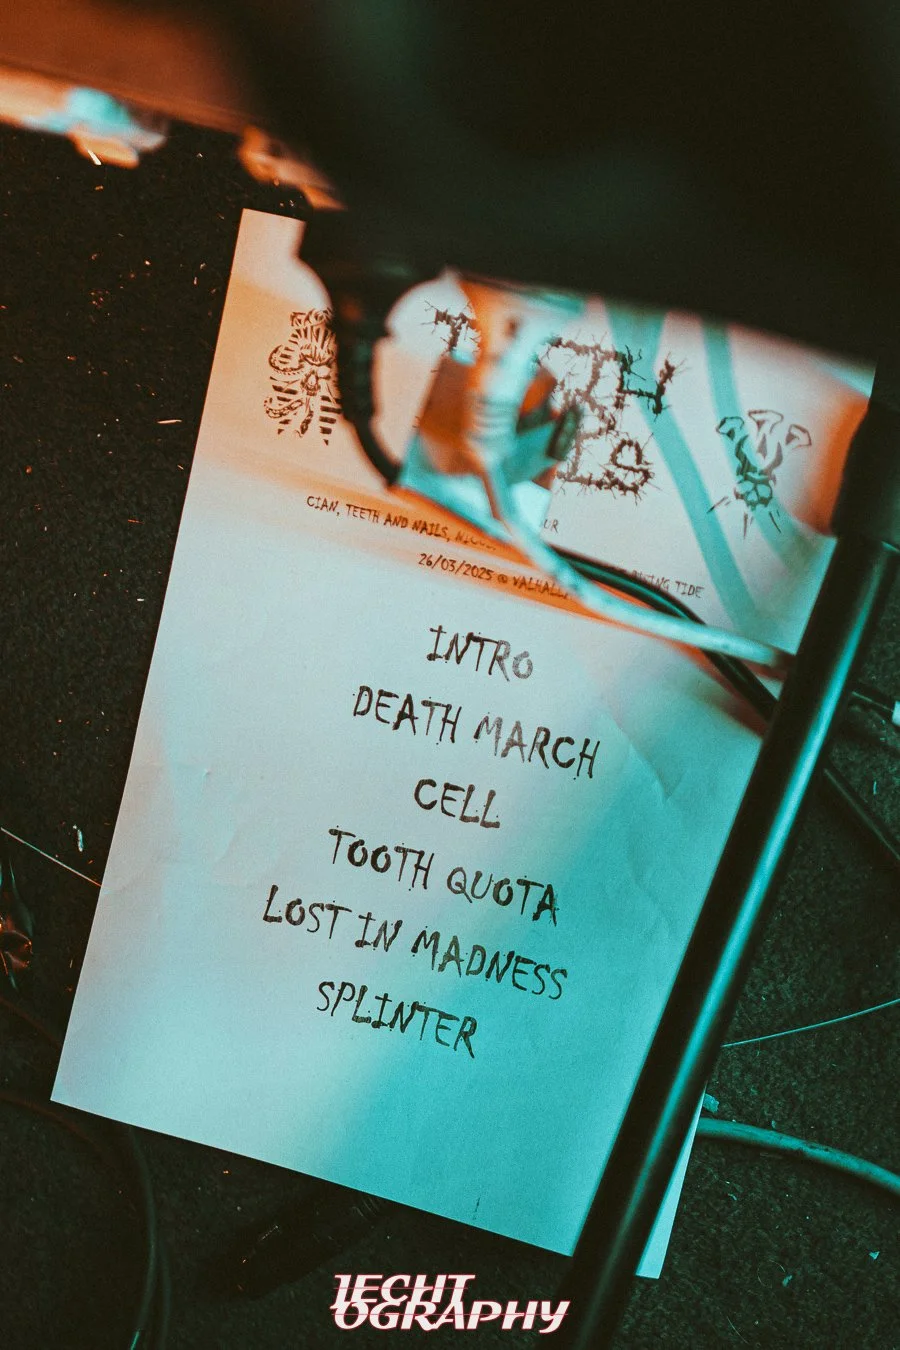 CIAN, TEETH AND NAILS,
26/03/2025 @ TIDE
INTRO
DEATH MARCH
CELL
TOOTH QUOTA
LOST IN MADNESS
SPLINTER
1ECHT
OGRAPHY